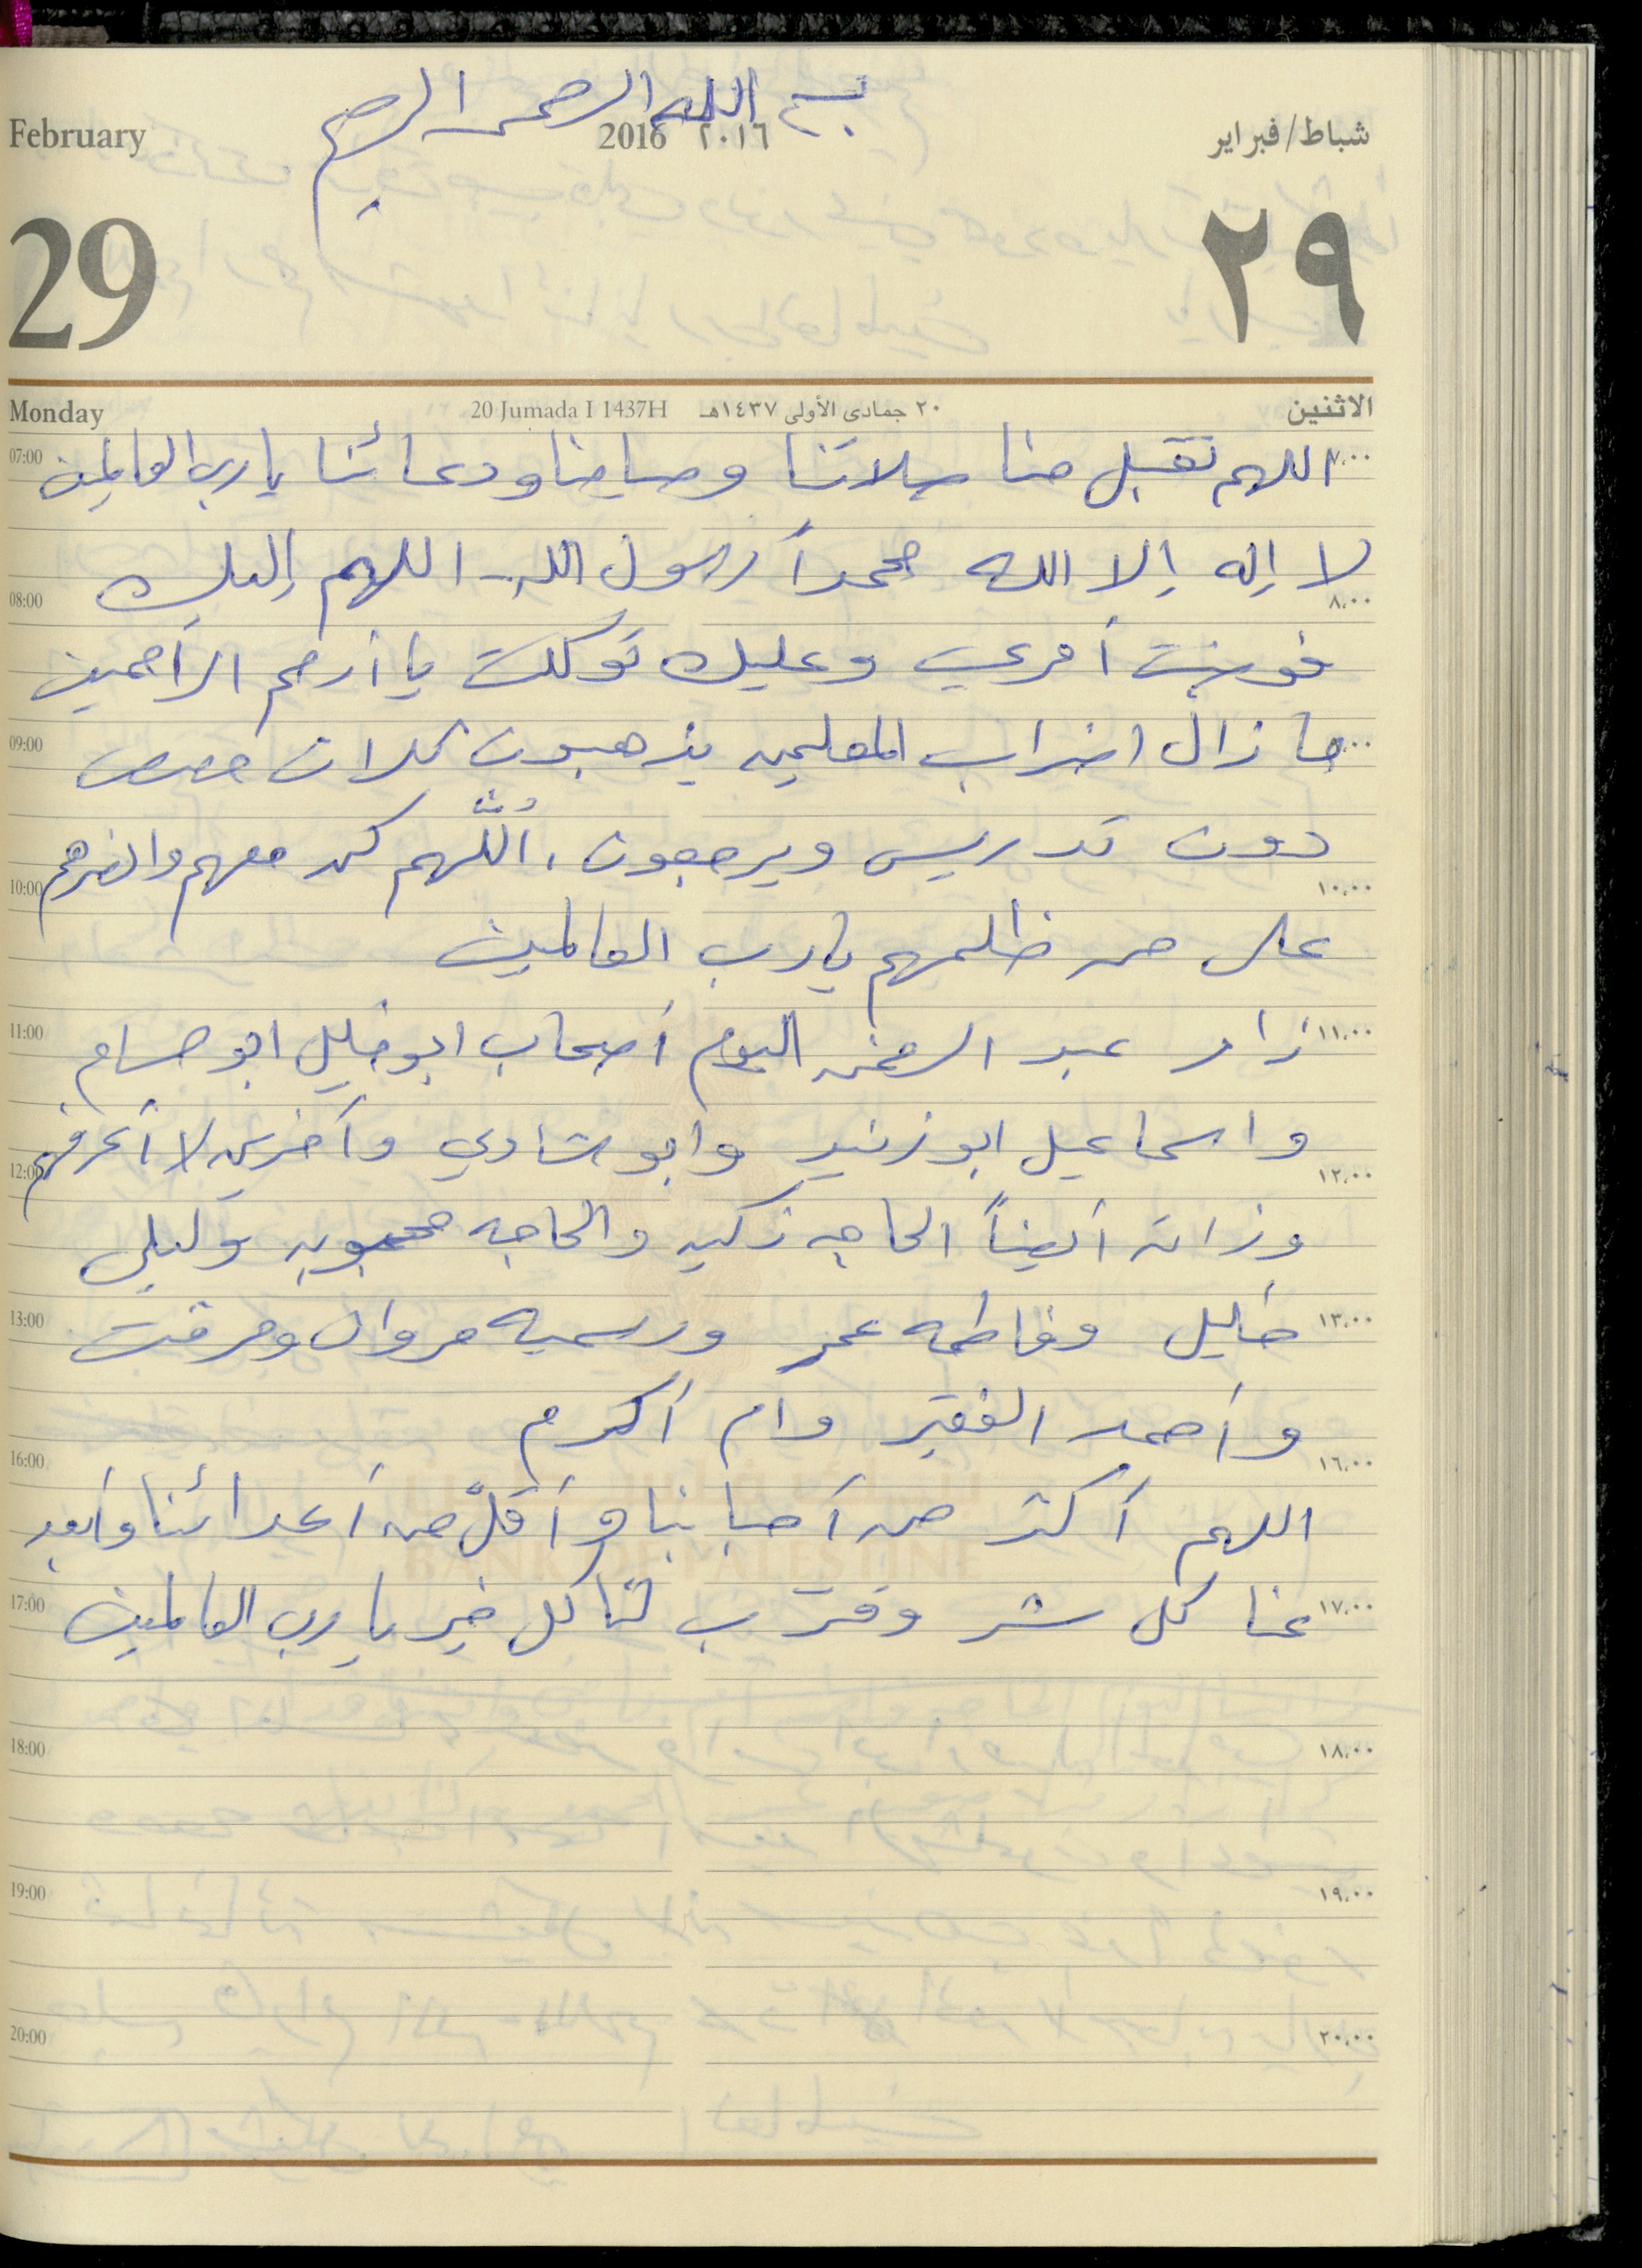 بسم الله الرحمن الرحيم
February 2016 ٢٠١٦ شباط/فبراير
29 ٢٩
Monday 20 Jumada I 1437H ٢٠ جمادى الأولى ١٤٣٧هـ الاثنين
07:00 اللهم تقبل منا صلاتنا وصيامنا ودعائنا يا رب العالمين ٧,٠٠
لا إله إلا الله محمداً رسول الله اللهم إليك
08:00 ٨,٠٠
فوضت أمري وعليك توكلت يا أرحم الراحمين
09:00 ما زال اضراب المعلمين يذهبون ثلاث حصص
دون تدريس ويرجعون، اللهم كن معهم وانصرهم
10:00 ١٠,٠٠
على من ظلمهم يا رب العالمين
11:00 زار عبد الرحمن اليوم أصحاب ابو خليل ابو حسام ١١,٠٠
واسماعيل ابو زنيد وابو شادي وآخرين لا أعرفهم
12:00 ١٢,٠٠
وزاته أيضاً الحاجه زكيه والحاجه محبوبه وليلى
13:00 خليل وفاطمه عمر ورسميه مروان وميرفت ١٣,٠٠
وأحمد الفقير وام أكرم
16:00 ١٦,٠٠
اللهم أكثر من أحبابنا وأقلّ من أعدائنا وأبعد
بنك فلسطين
BANK OF PALESTINE
17:00 عنا كل شر وقرّب لنا كل خير يا رب العالمين ١٧,٠٠
18:00 ١٨,٠٠
19:00 ١٩,٠٠
20:00 ٢٠,٠٠